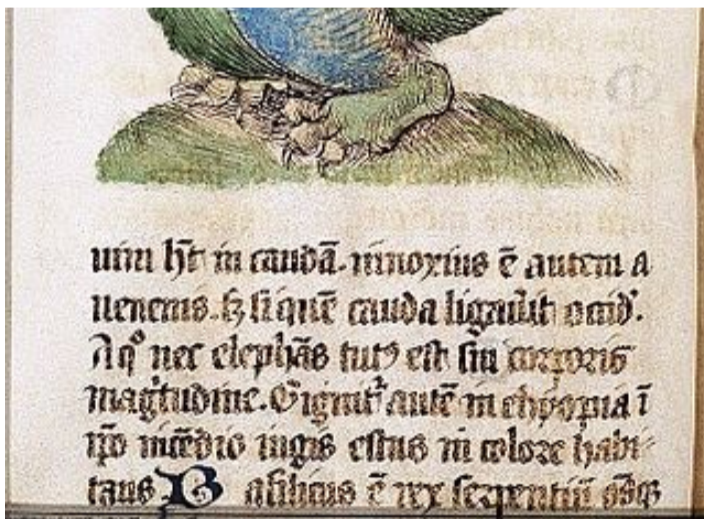 uim hꝫ in caudā. innoxius ē autem a
uenenis. sꝫ si quē cauda ligauit occidꝰ.
A qͦ nec elephās tutꝰ est sui corporis
magitudine. Gignitᷣ autē in ethyopia ī
ip̄o incēdio iugis estus in colore habi
tans Basilicus ē rex serpentiū